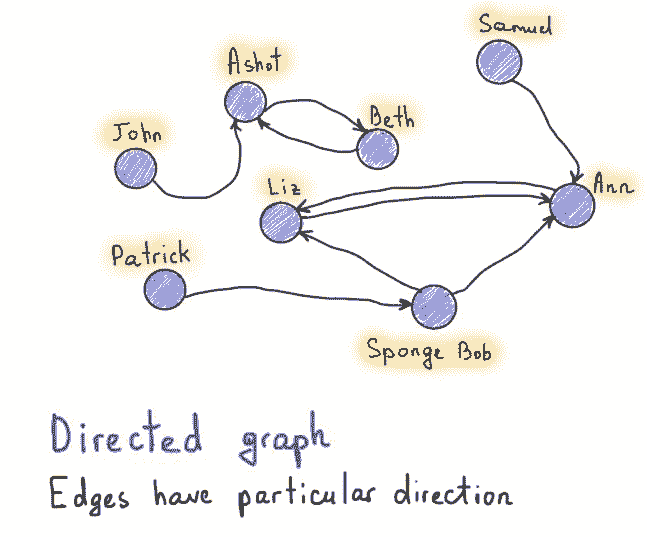 Samuel
Ashot
Beth
John
Liz
Ann
Patrick
Sponge Bob
Directed graph
Edges have particular direction